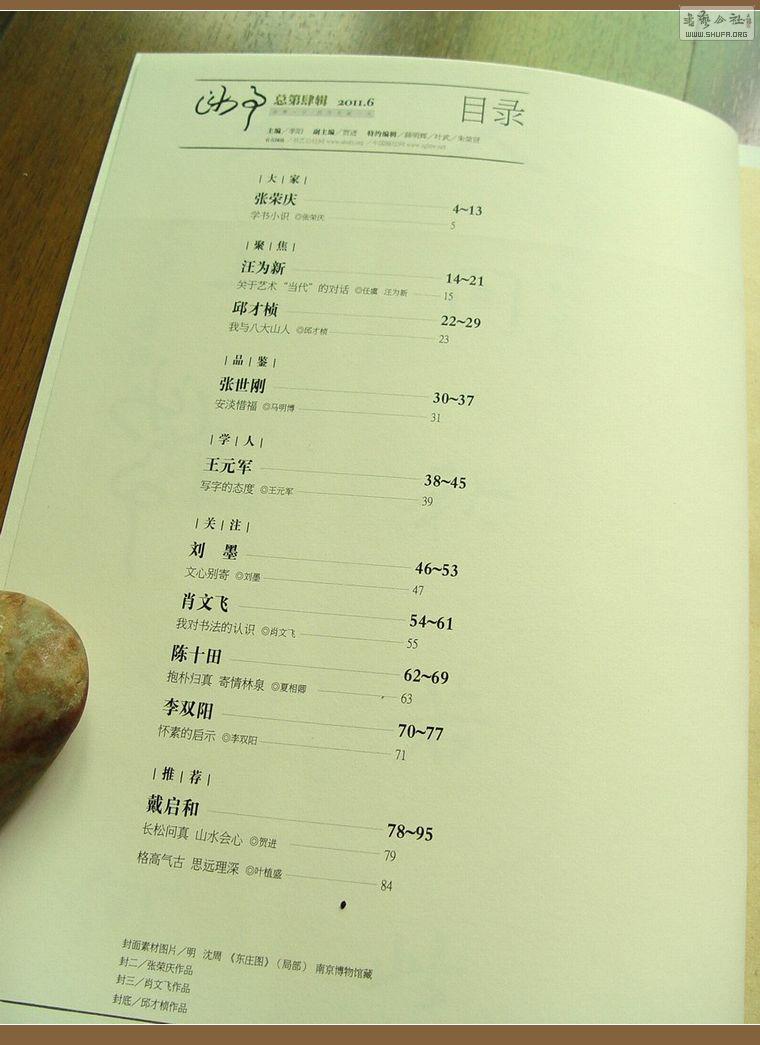 书艺公社
WWW.SHUFA.ORG
总第肆辑 2011.6
目录
主编／李阳 副主编／贺进 特约编辑／薛明辉／叶武／朱荣贤
｜大｜家｜
张荣庆 4~13
学书小识 ◎张荣庆 5
｜聚｜焦｜
汪为新 14~21
关于艺术“当代”的对话 ◎任虞 汪为新 15
邱才桢 22~29
我与八大山人 ◎邱才桢 23
｜品｜鉴｜
张世刚 30~37
安淡惜福 ◎马明博 31
｜学｜人｜
王元军 38~45
写字的态度 ◎王元军 39
｜关｜注｜
刘 墨 46~53
文心别寄 ◎刘墨 47
肖文飞 54~61
我对书法的认识 ◎肖文飞 55
陈十田 62~69
抱朴归真 寄情林泉 ◎夏相卿 63
李双阳 70~77
怀素的启示 ◎李双阳 71
｜推｜荐｜
戴启和 78~95
长松问真 山水会心 ◎贺进 79
格高气古 思远理深 ◎叶植盛 84
封面素材图片／明 沈周 《东庄图》（局部） 南京博物馆藏
封二／张荣庆作品
封三／肖文飞作品
封底／邱才桢作品